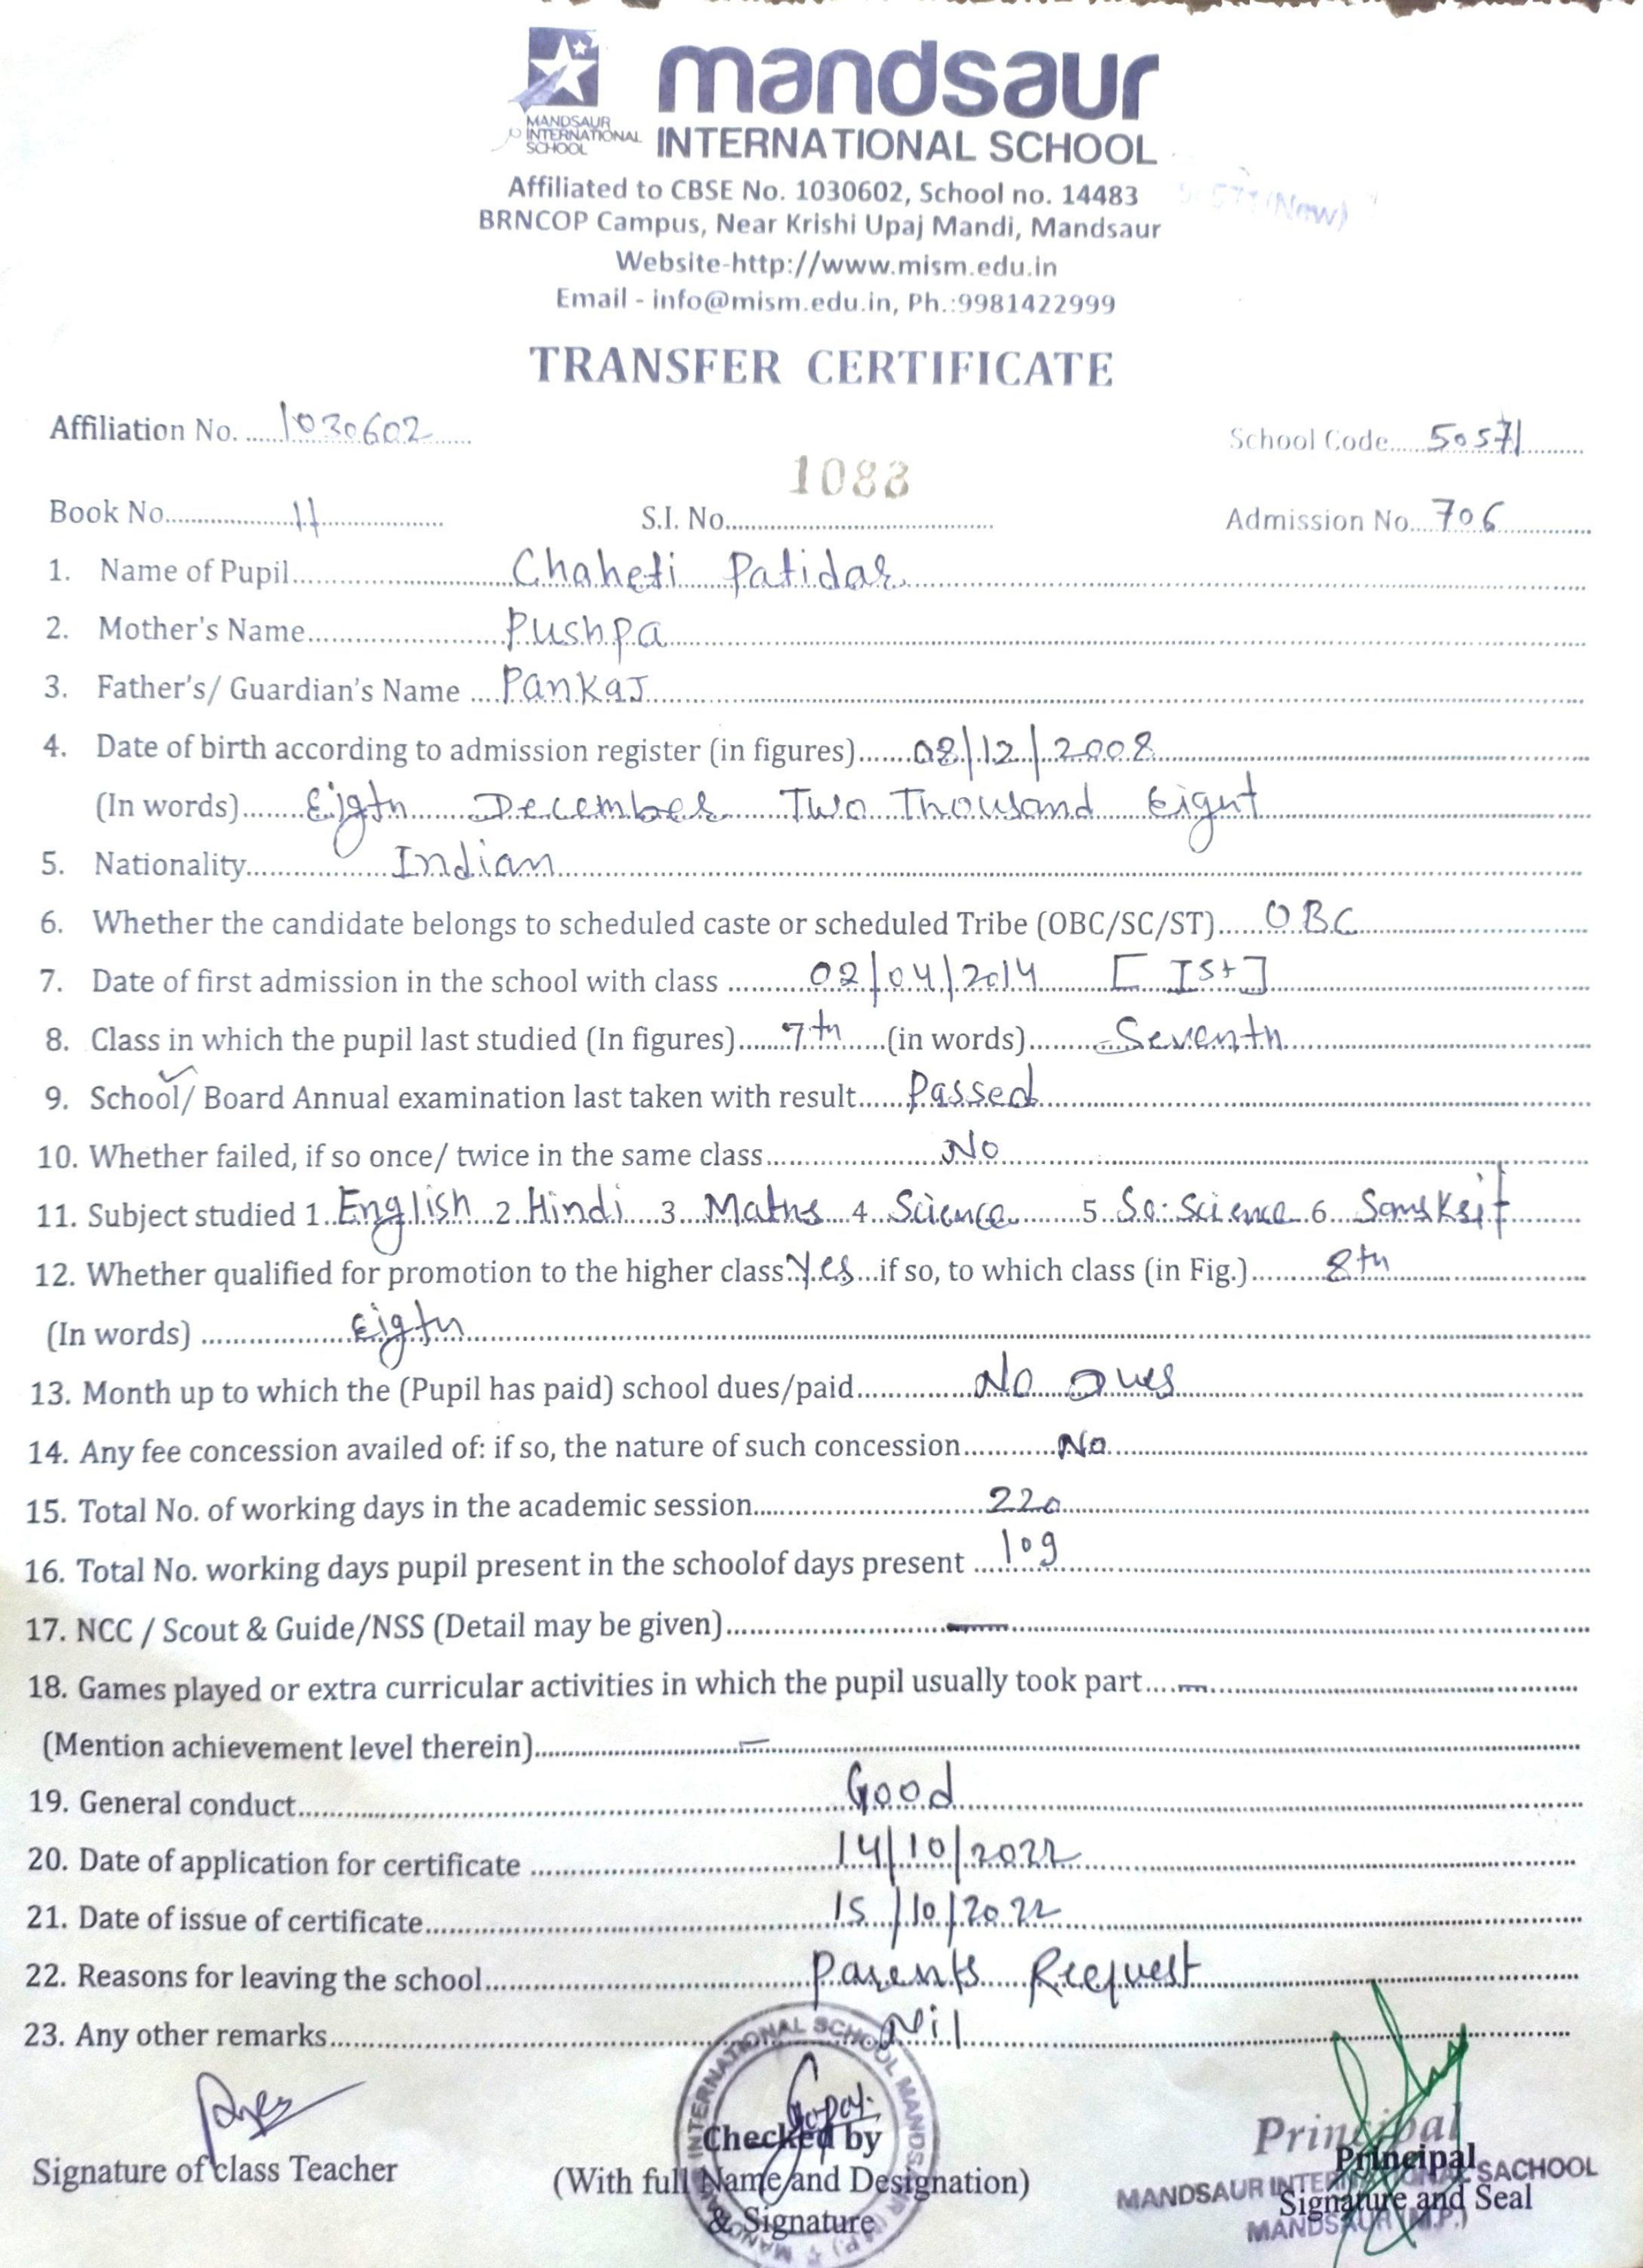 mandsaur
MANDSAUR
INTERNATIONAL
SCHOOL
INTERNATIONAL SCHOOL
Affiliated to CBSE No. 1030602, School no. 14483
(New)
BRNCOP Campus, Near Krishi Upaj Mandi, Mandsaur
Website-http://www.mism.edu.in
Email - info@mism.edu.in, Ph.:9981422999
TRANSFER CERTIFICATE
Affiliation No. 1030602 School Code 50571
1083
Book No. 11 S.I. No. Admission No. 706
1. Name of Pupil Chaheti Patidar
2. Mother's Name Pushpa
3. Father's/ Guardian's Name Pankaj
4. Date of birth according to admission register (in figures) 08/12/2008
(In words) Eigth December Two Thousand Eight
5. Nationality Indian
6. Whether the candidate belongs to scheduled caste or scheduled Tribe (OBC/SC/ST) OBC
7. Date of first admission in the school with class 02/04/2014 [Ist]
8. Class in which the pupil last studied (In figures) 7th (in words) Seventh
9. School/ Board Annual examination last taken with result Passed
10. Whether failed, if so once/ twice in the same class No
11. Subject studied 1. English 2. Hindi 3. Maths 4. Science 5. So. Science 6. Samskrit
12. Whether qualified for promotion to the higher class Yes if so, to which class (in Fig.) 8th
(In words) Eigth
13. Month up to which the (Pupil has paid) school dues/paid No Dues
14. Any fee concession availed of: if so, the nature of such concession No
15. Total No. of working days in the academic session 220
16. Total No. working days pupil present in the schoolof days present 109
17. NCC / Scout & Guide/NSS (Detail may be given) —
18. Games played or extra curricular activities in which the pupil usually took part —
(Mention achievement level therein) —
19. General conduct Good
20. Date of application for certificate 14/10/2022
21. Date of issue of certificate 15/10/2022
22. Reasons for leaving the school Parents Request
23. Any other remarks Nil
INTERNATIONAL SCHOOL MANDSAUR (M.P.)
Principal
Checked by
Principal
Signature of class Teacher
(With full Name and Designation)
MANDSAUR INTERNATIONAL SACHOOL
Signature and Seal
& Signature
MANDSAUR (M.P.)